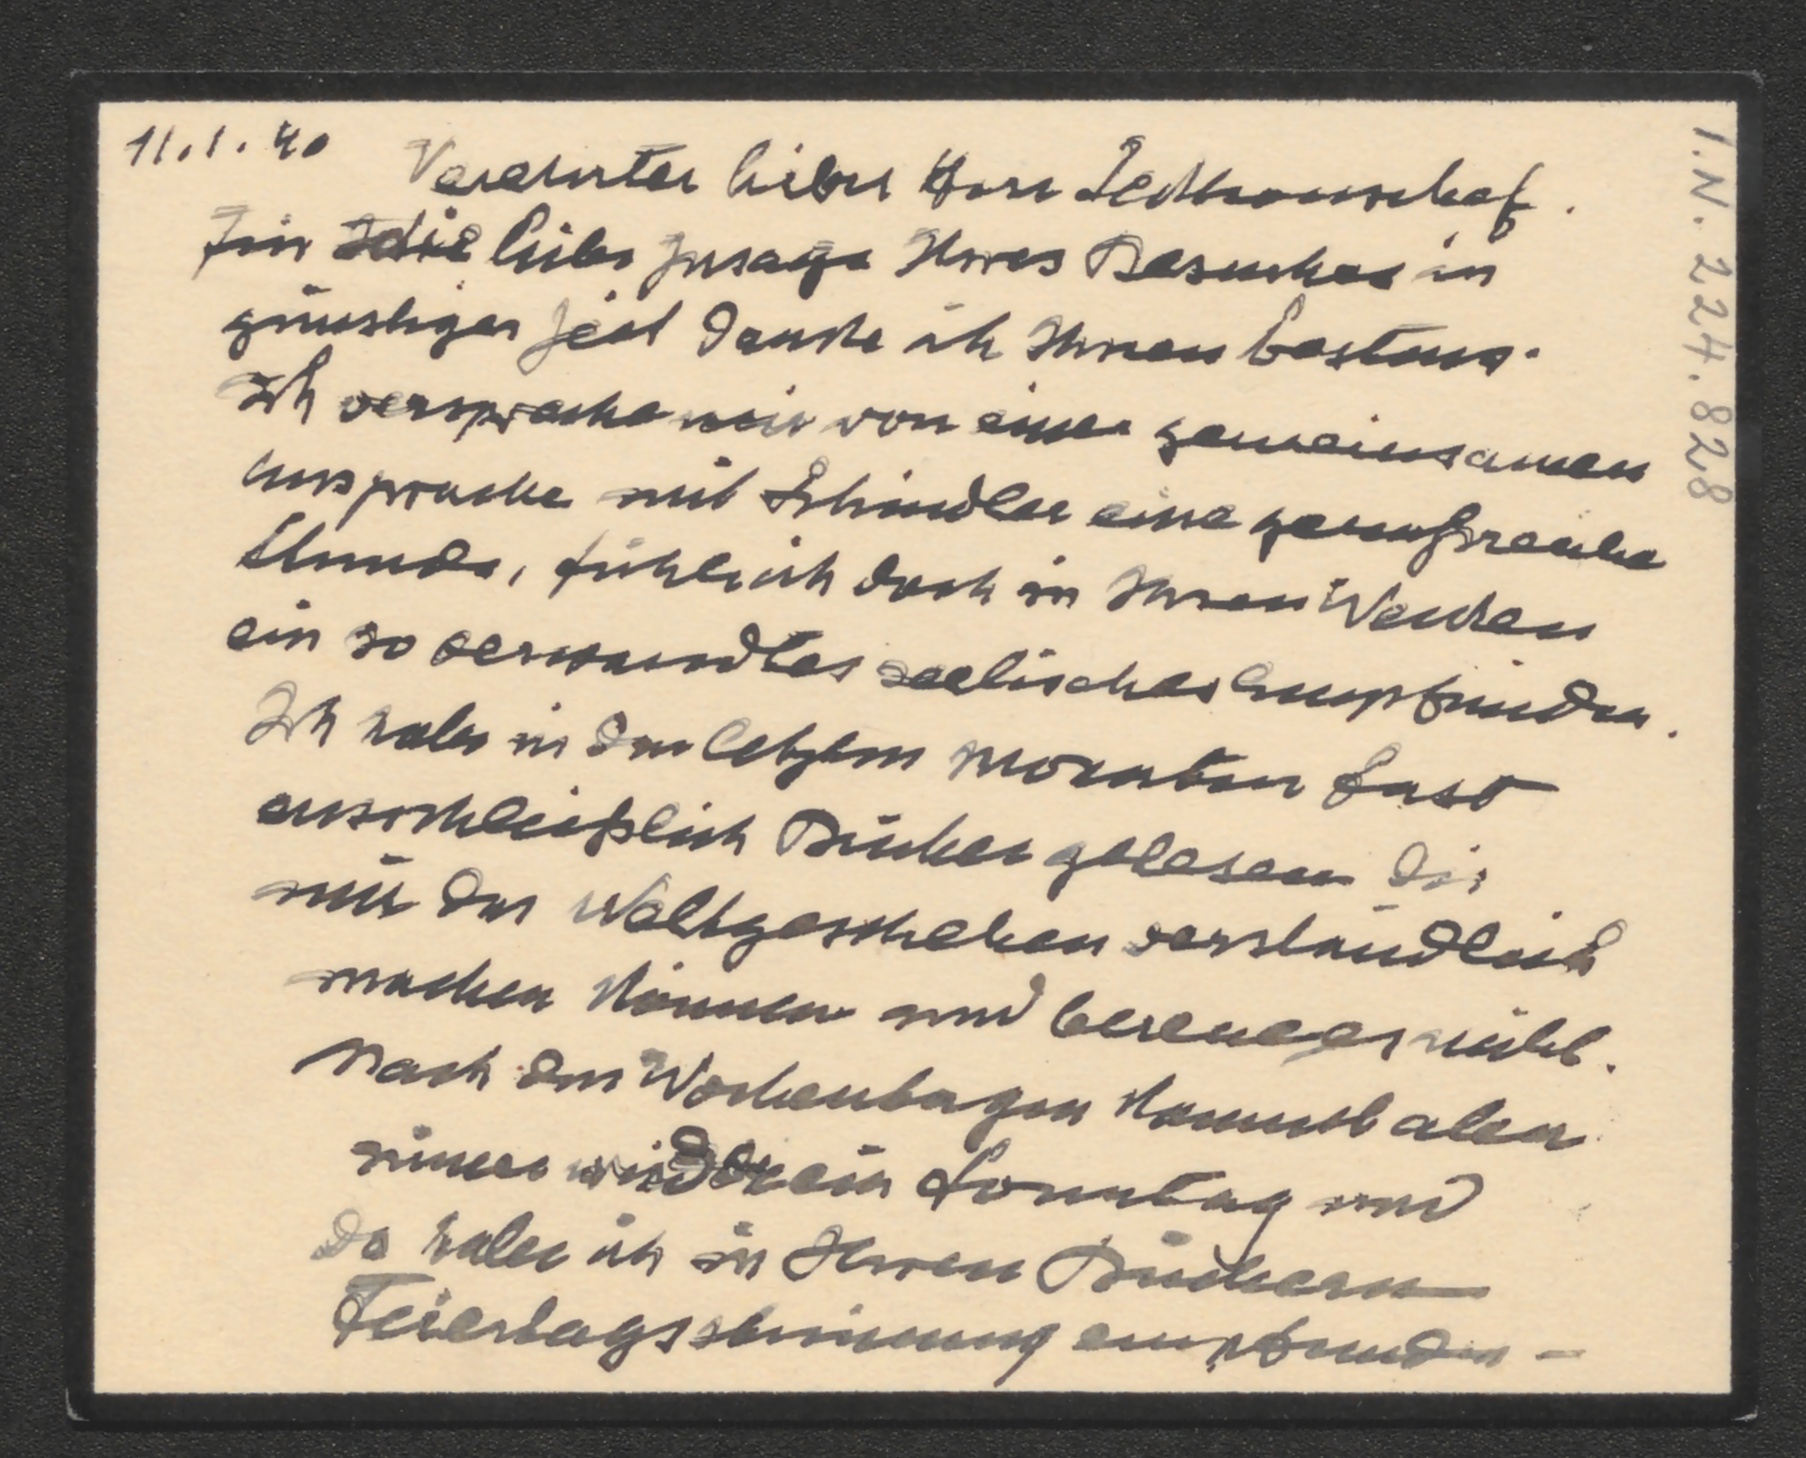 11.1.40 Verehrter lieber Herr
Für die liebe Zusage Ihres Besuches in
günstiger Zeit danke ich Ihnen bestens.
Ich verspreche mir von einer gemeinsamen
Aussprache mit Schindler eine genußreiche
Stunde, fühle ich doch in Ihren Werken
ein so verwandtes seelisches Empfinden.
Ich habe in den letzten Monaten fast
ausschließlich Bücher gelesen die
mir das Weltgeschehen verständlich
machen können und bereue es nicht.
Nach den Wochentagen kommt aber
immer wieder ein Sonntag und
da habe ich in Ihren Büchern
Feiertagsstimmung empfunden –
I.N. 224.828